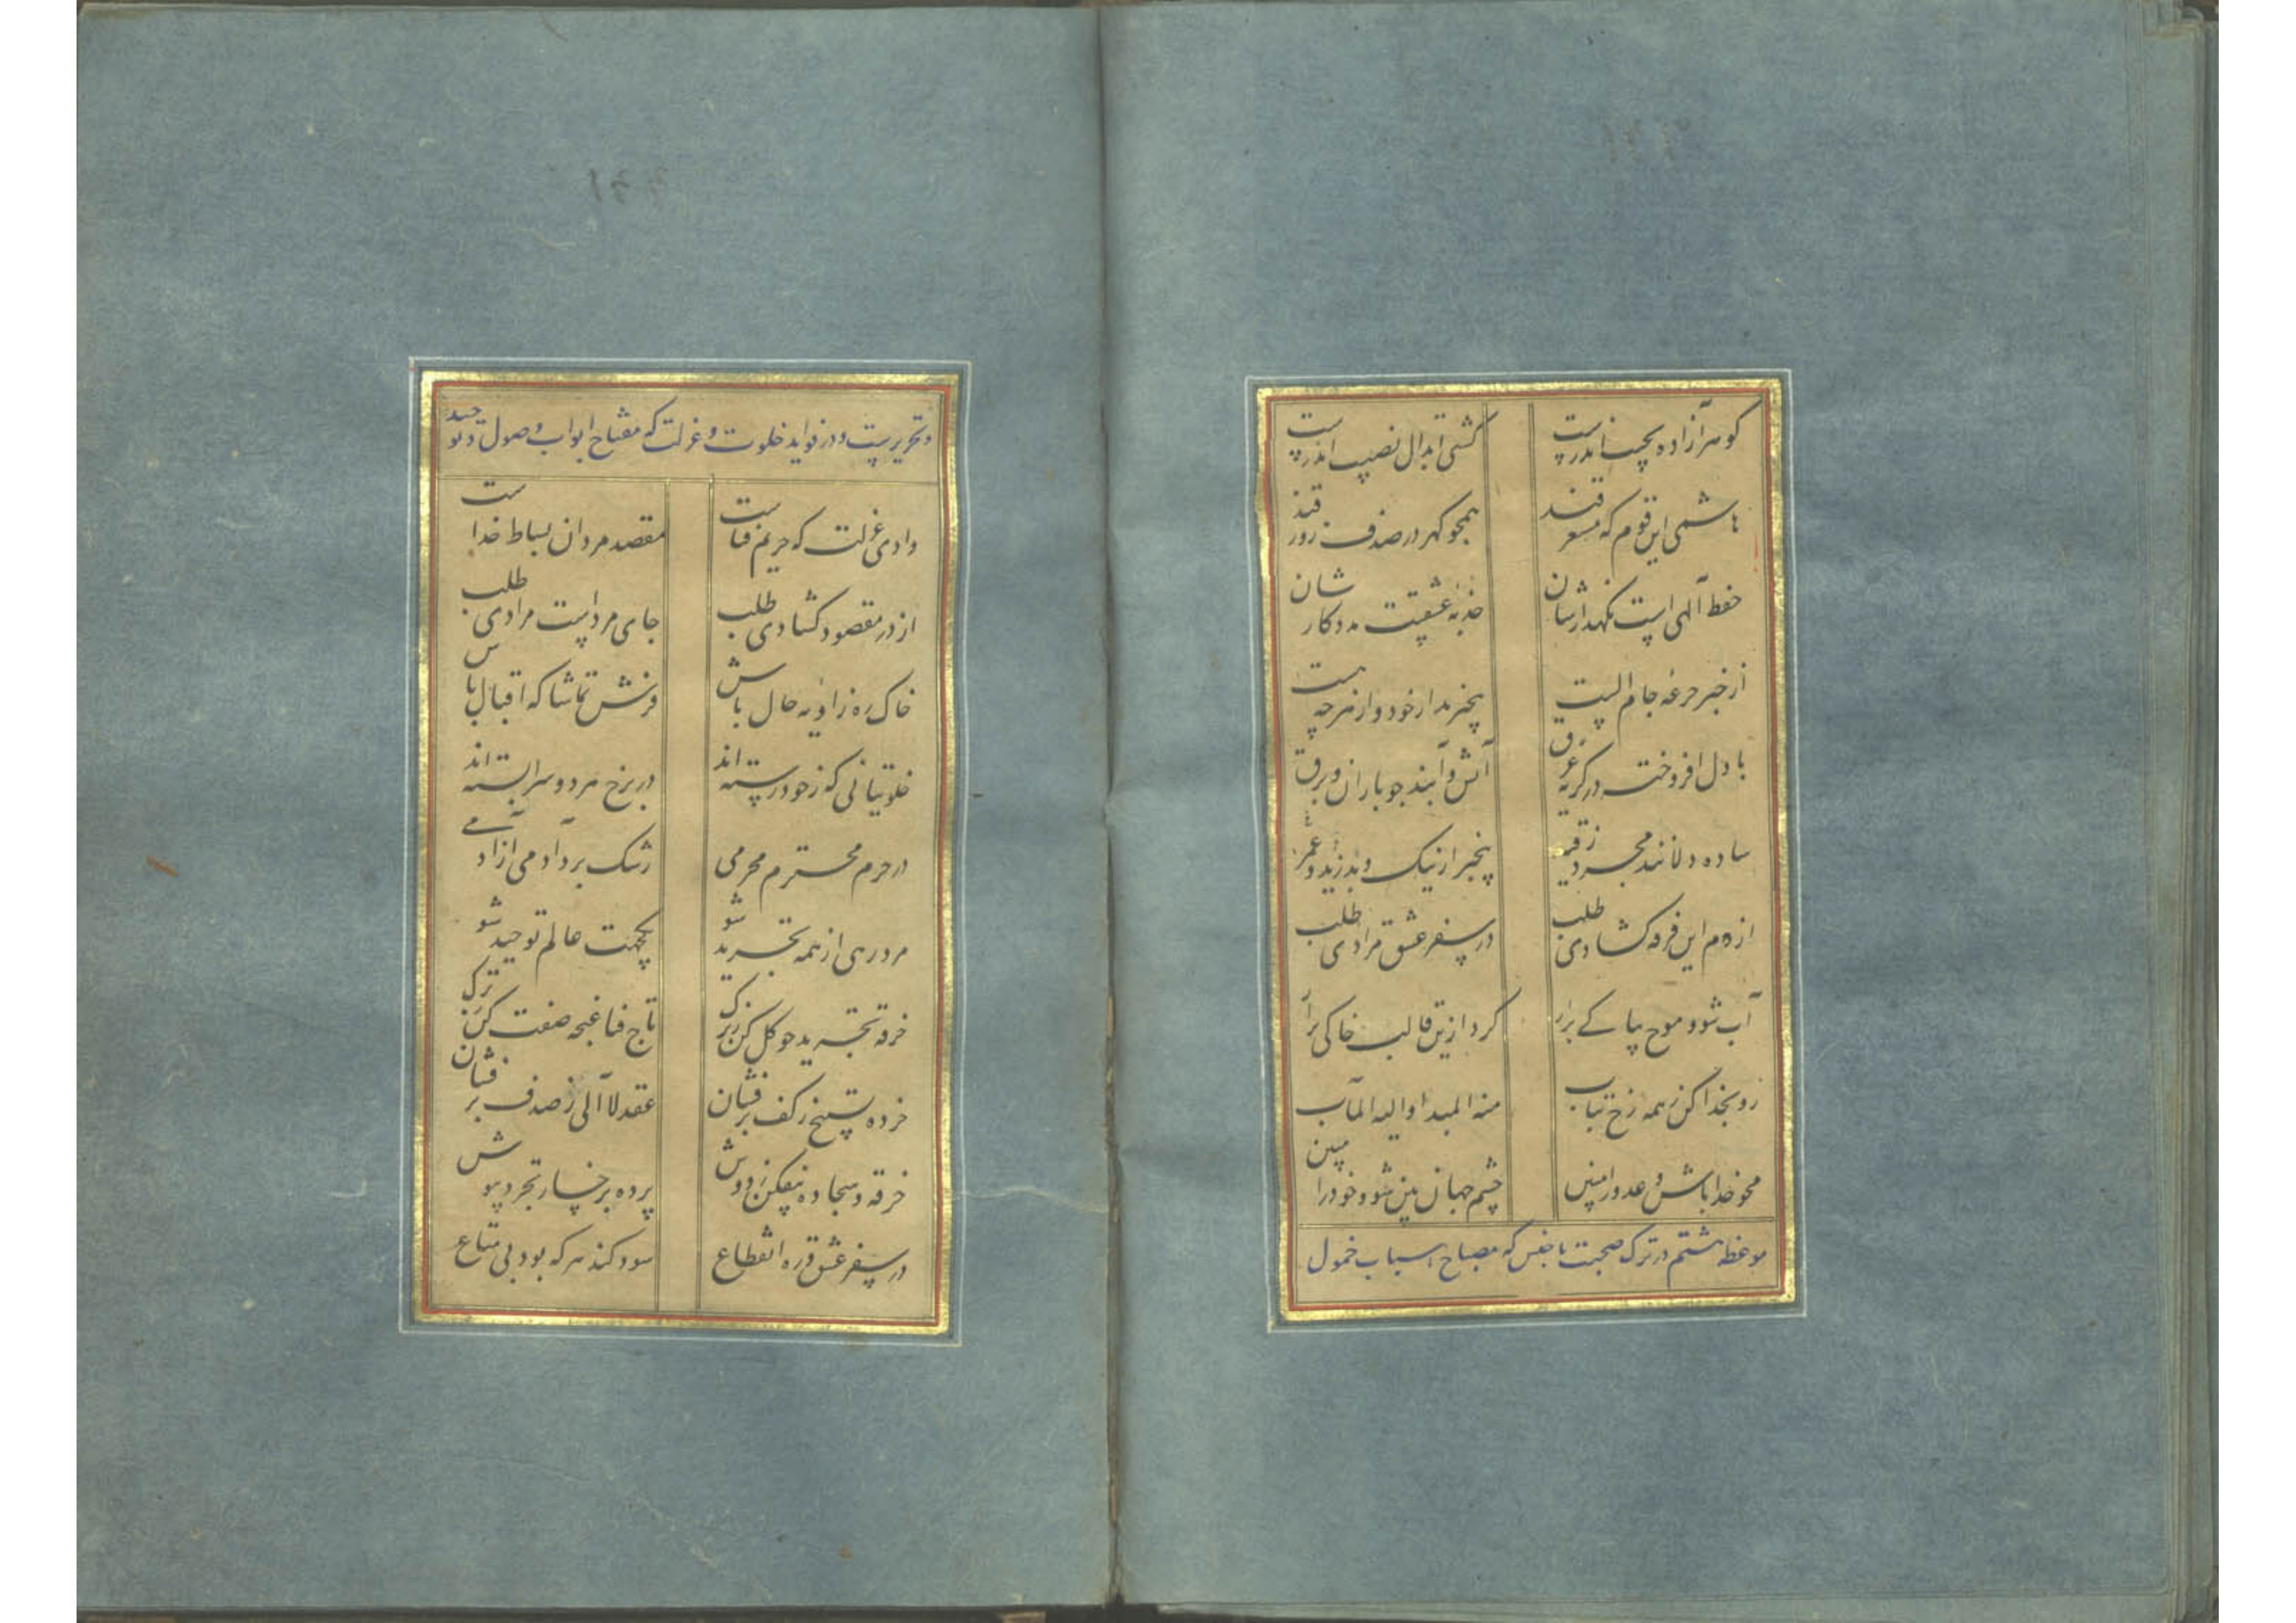 گوهر آزاده بچسبا ندرست
کشتی ابدال نصیب اندرست
هاشمی این قوم که مستغرقند
همچو گهر در صدف زورقند
حفظ آلهی است نگهدارشان
جذبه عشقست مددکارشان
از خبر جرعه جام الست
بیخبرند از خود و از هر چه هست
با دل افروخته در گریه غرق
آتش و آبند چو باران و برق
ساده دلانند مجرد ز قید
بیخبر از نیک و بد زید و عمر
از دم این فرقه گشادی طلب
در سفر عشق مرادی طلب
آب شو و موج بپاکی برآر
گرد ازین قالب خاکی برآر
رو بخدا کن ز همه رخ بتاب
منه المبدا و الیه المآب
محو خدا باش و عدو را مبین
چشم جهان بین شو و خود را مبین
موعظه هشتم در ترک صحبت ناجنس که مصباح اسباب خمول
و تجریدست و در فواید خلوت و عزلت که مفتاح ابواب وصول و توحید
وادی عزلت که حریم فناست
مقصد مردان بساط خداست
از در مقصود گشادی طلب
جای مرادست مرادی طلب
خاک ره زاویه حال باش
فرش تماشاگه اقبال باش
خلوتیانی که ز خود رسته اند
در برخ مرد و سرا بسته اند
در حرم محترم محرمی
رشک برد آدمی آزادمی
مرد رهی از همه تجرید شو
یکجهت عالم توحید شو
خرقه تجرید چو گل کن ز برگ
تاج فنا غنچه صفت کن ز ترک
خرده تسبیح ز کف برفشان
عقد لاآلی ز صدف برفشان
خرقه و سجاده بیفکن ز دوش
پرده بر خسار تجرد بپوش
در سفر عشق و ره انقطاع
سود کند هر که بود بی متاع